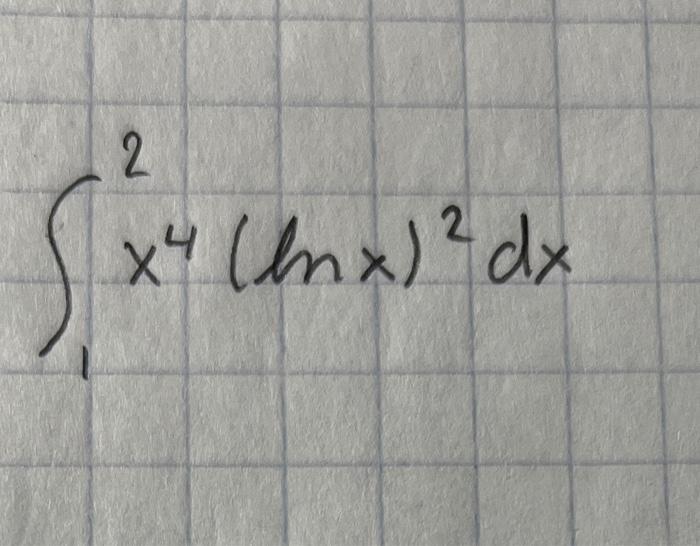 ∫₁² x⁴ (ln x)² dx